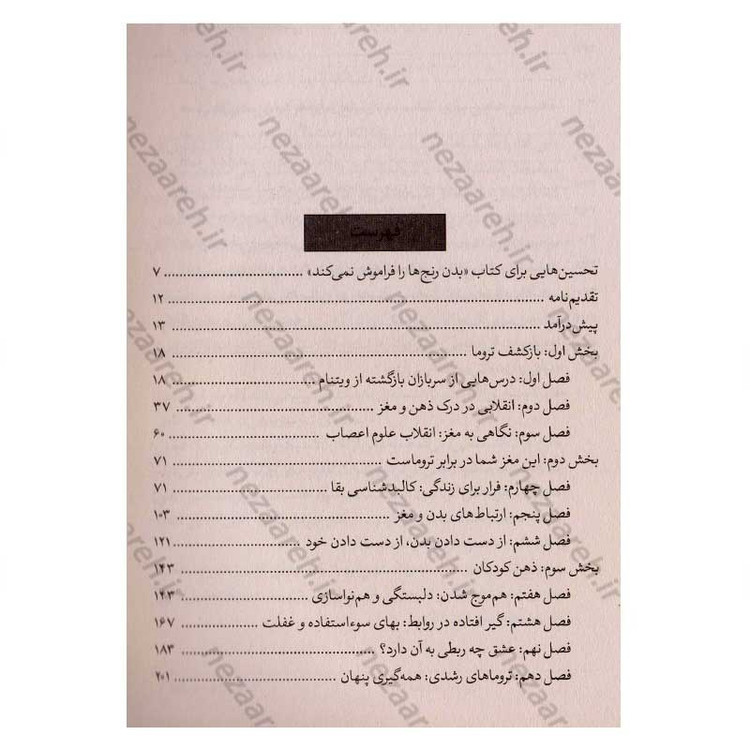 فهرست
تحسین‌هایی برای کتاب «بدن رنج‌ها را فراموش نمی‌کند» ۷
تقدیم‌نامه ۱۲
پیش‌درآمد ۱۳
بخش اول: بازکشف تروما ۱۸
فصل اول: درس‌هایی از سربازان بازگشته از ویتنام ۱۸
فصل دوم: انقلابی در درک ذهن و مغز ۳۷
فصل سوم: نگاهی به مغز: انقلاب علوم اعصاب ۶۰
بخش دوم: این مغز شما در برابر تروماست ۷۱
فصل چهارم: فرار برای زندگی: کالبدشناسی بقا ۷۱
فصل پنجم: ارتباط‌های بدن و مغز ۱۰۳
فصل ششم: از دست دادن بدن، از دست دادن خود ۱۲۱
بخش سوم: ذهن کودکان ۱۴۳
فصل هفتم: هم‌موج شدن: دلبستگی و هم‌نواسازی ۱۴۳
فصل هشتم: گیر افتاده در روابط: بهای سوءاستفاده و غفلت ۱۶۷
فصل نهم: عشق چه ربطی به آن دارد؟ ۱۸۳
فصل دهم: تروماهای رشدی: همه‌گیری پنهان ۲۰۱
nezaareh.ir